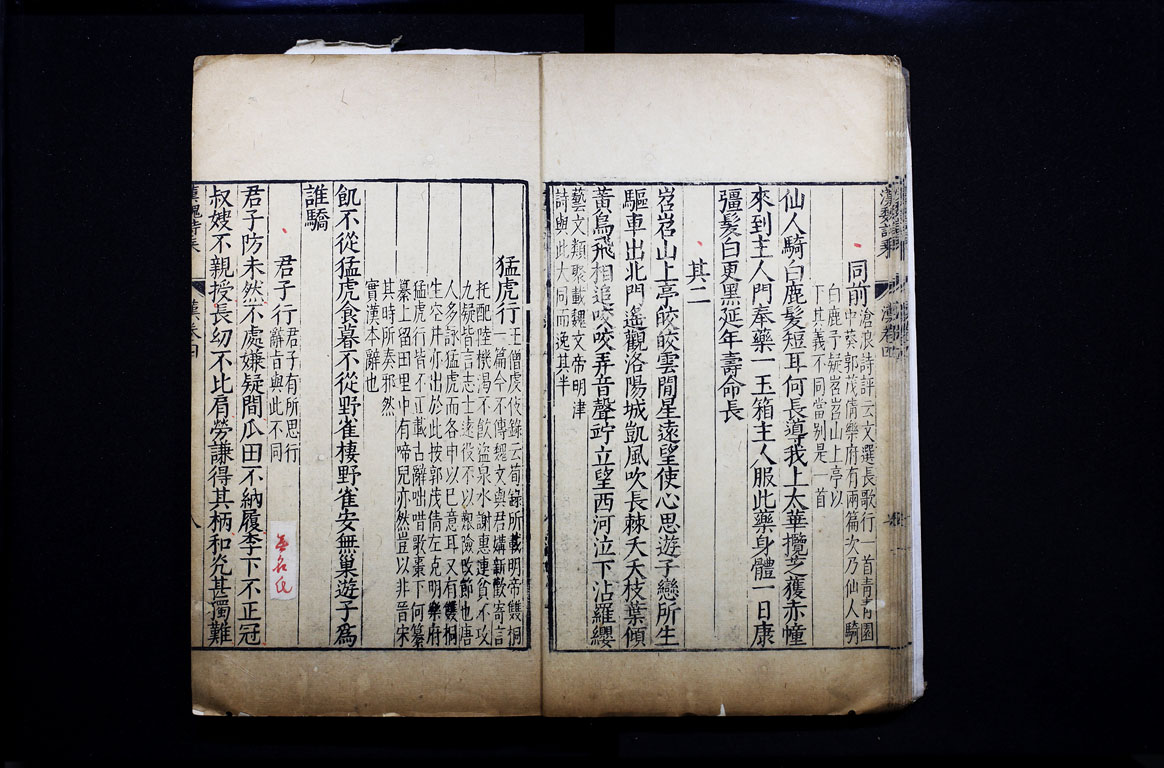 漢魏詩乘
同前
滄浪詩評云文選長歌行一首青青園
中葵郭茂倩樂府有兩篇次乃仙人騎
白鹿予疑岧岧山上亭以
下其義不同當别是一首
仙人騎白鹿髮短耳何長導我上太華攬芝獲赤幢
來到主人門奉藥一玉箱主人服此藥身體一日康
彊髮白更黑延年壽命長
其二
岧岧山上亭皎皎雲間星遠望使心思遊子戀所生
驅車出北門遙觀洛陽城凱風吹長棘夭夭枝葉傾
黃鳥飛相追咬咬弄音聲竚立望西河泣下沾羅纓
藝文類聚載魏文帝明津
詩與此大同而逸其半
猛虎行
王僧虔伎錄云荀錄所載明帝雙桐
一篇今不傳魏文與君媾新歡寄言
托配陸機渴不飲盜泉水謝惠連貧不攻
九疑皆言志士遠役不以艱險改節也唐
人多詠猛虎而各申以已意耳又有雙桐
生空井亦出於此按郭茂倩左克明樂府
猛虎行皆不正載古辭咄唶歌棗下何纂
纂上留田里中有啼兒亦然豈以非晉宋
其時所奏邪然
實漢本辭也
飢不從猛虎食暮不從野雀棲野雀安無巢遊子爲
誰驕
君子行
君子有所思行
辭旨與此不同
無名氏
君子防未然不處嫌疑間瓜田不納履李下不正冠
叔嫂不親授長幼不比肩勞謙得其柄和光甚獨難
漢魏詩乘 漢卷四 八